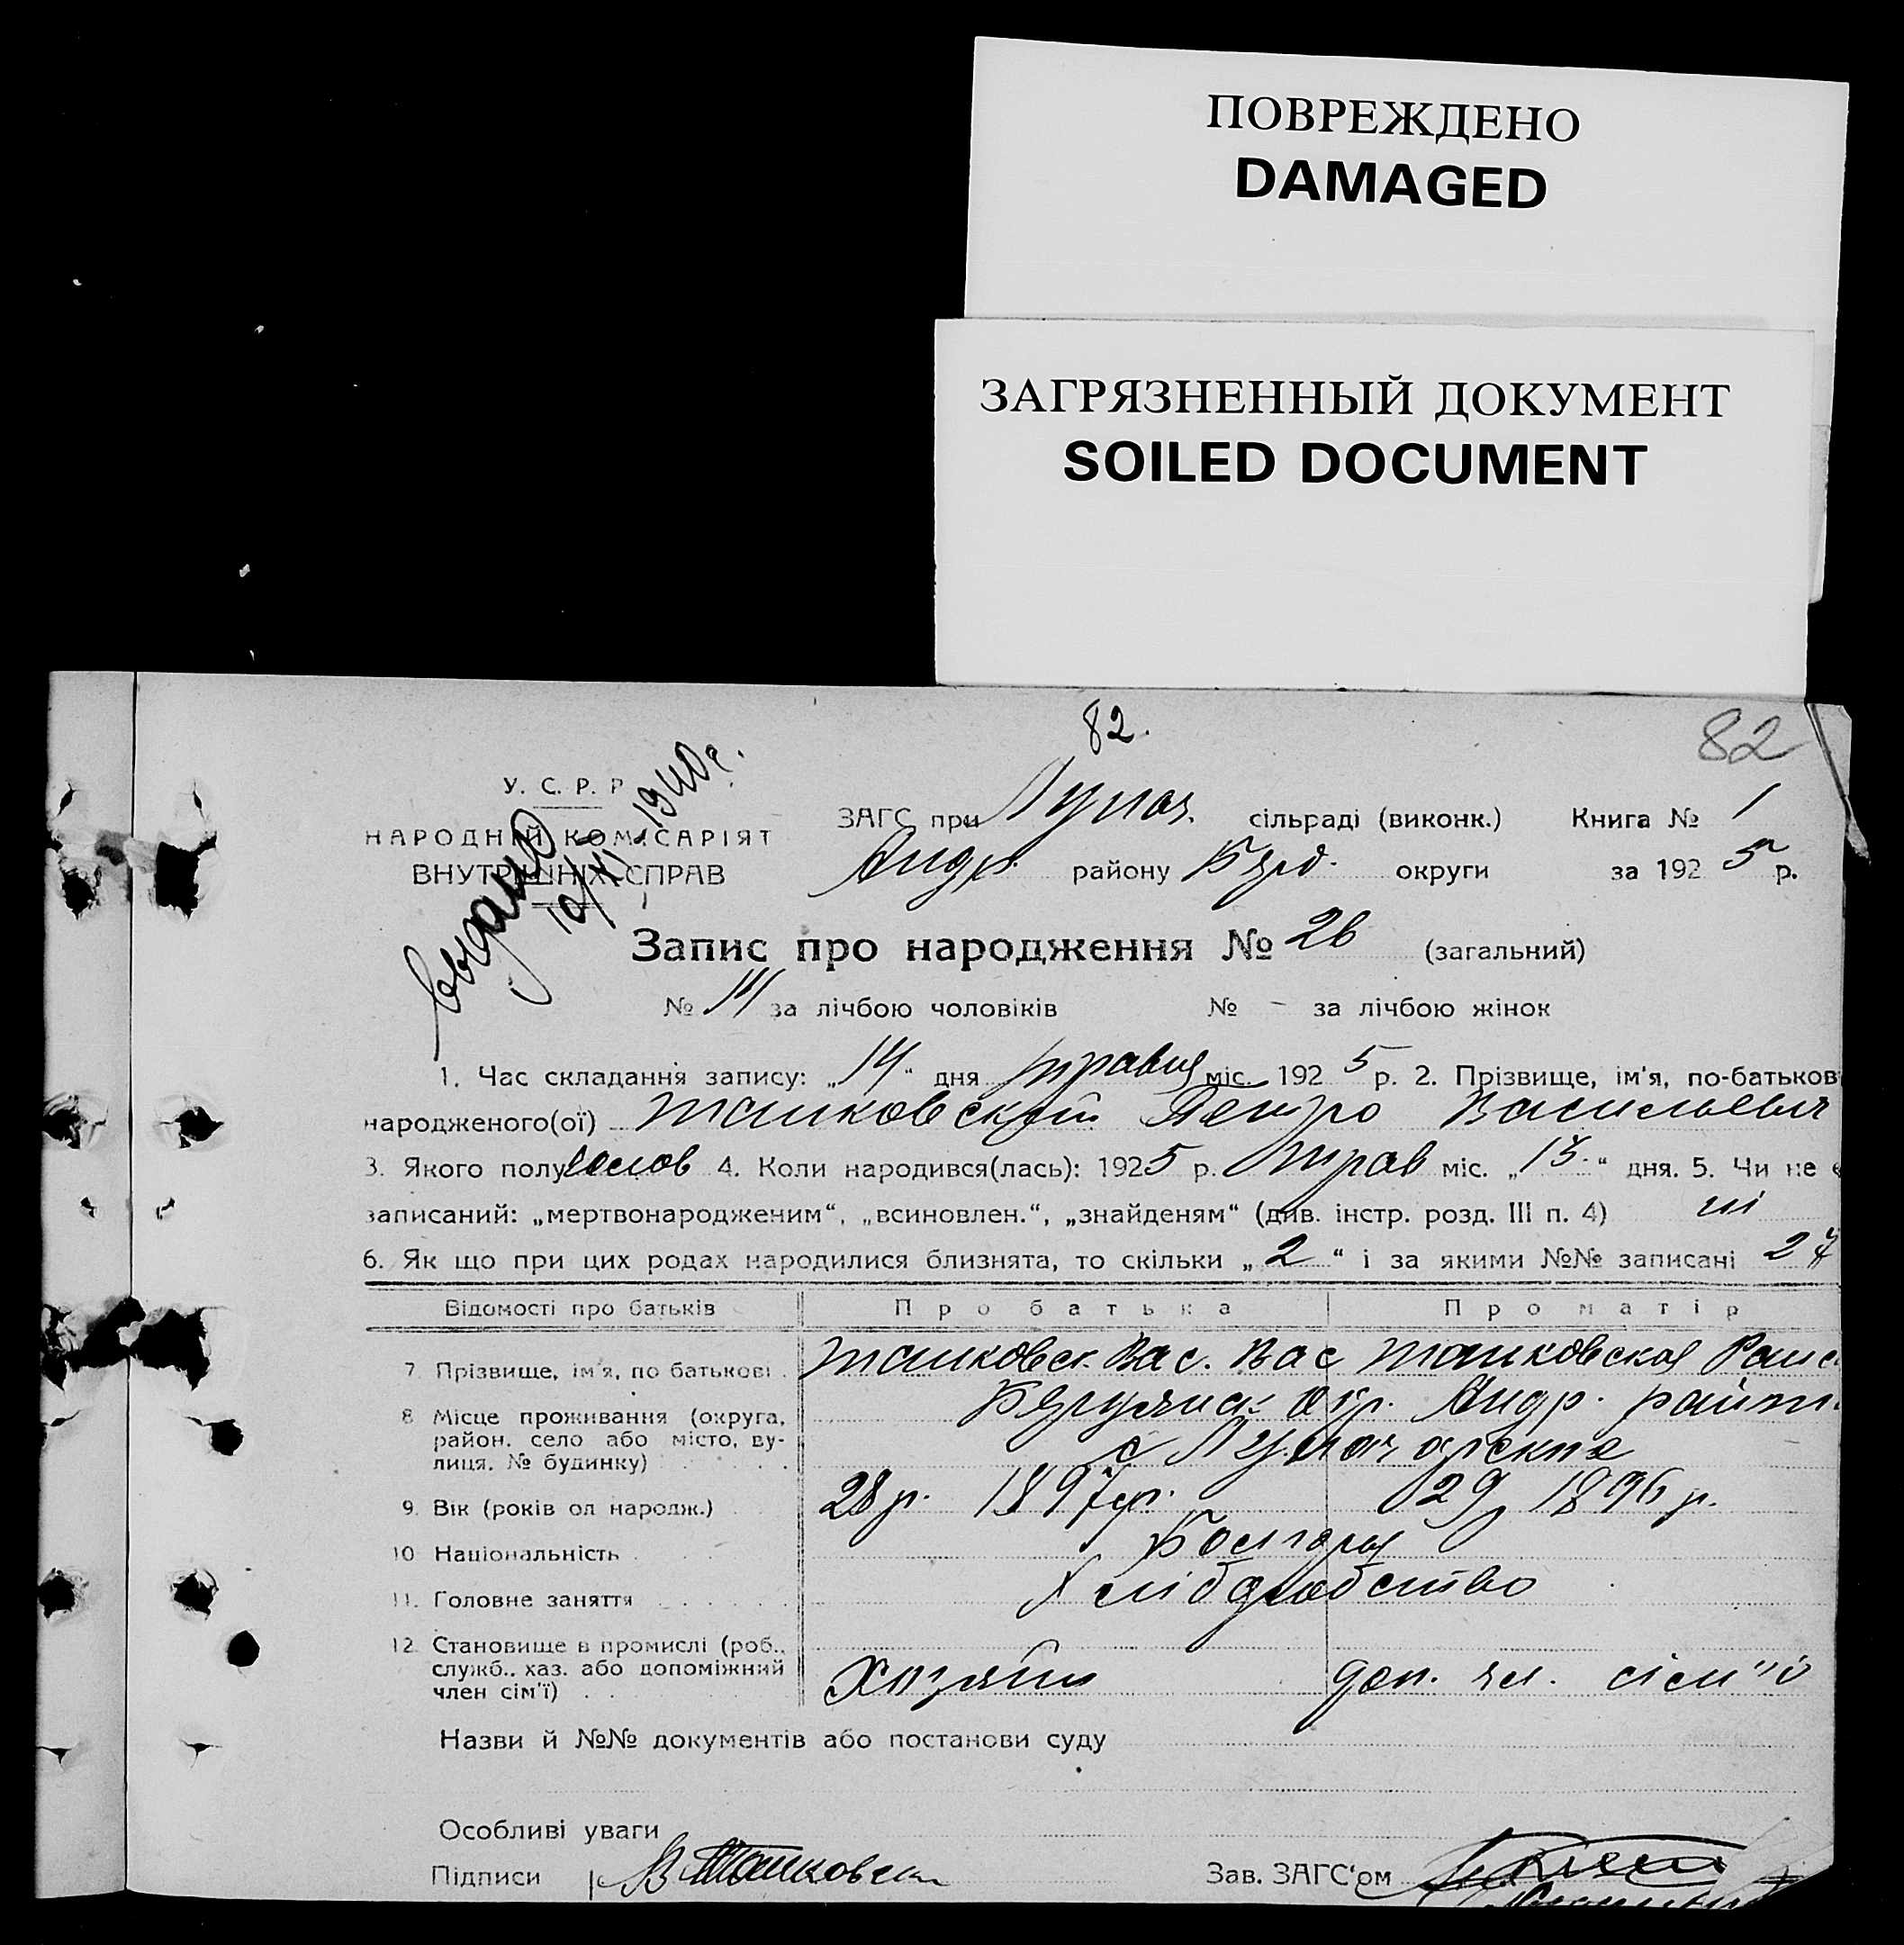 ПОВРЕЖДЕНО
DAMAGED
ЗАГРЯЗНЕННЫЙ ДОКУМЕНТ
SOILED DOCUMENT
82.
82
У. С. Р. Р
НАРОДНІЙ КОМІСАРІЯТ
ВНУТРІШНІХ СПРАВ
видано
10/VI 1940 г.
ЗАГС при Лунач. сільраді (виконк.) Книга № 1
Андр. району Берд. округи за 1925 р.
Запис про народження № 26 (загальний)
№ 14 за лічбою чоловіків № - за лічбою жінок
1. Час складання запису: „14“ дня травня міс. 1925 р. 2. Прізвище, ім'я, по-батьков
народженого(ої) Танковский Петро Васильевич
3. Якого полу чолов 4. Коли народився(лась): 1925 р. Трав міс. „13.“ дня. 5. Чи не є
записаний: „мертвонародженим“, „всиновлен.“, „знайденям“ (див. інстр. розд. III п. 4) ні
6. Як що при цих родах народилися близнята, то скільки „2“ і за якими №№ записані 27
Відомості про батьків Про батька Про матір
7. Прізвище, ім'я, по батькові Танковск. Вас. Вас Танковская
8. Місце проживання (округа, район, село або місто, ву-
лиця, № будинку) Бердянск. окр. Андр. район.
с Луначарскне
9. Вік (років од народж.) 28 р. 1897 р. 29 1896 р.
10 Національність Болгоря
11. Головне заняття Хлібдробство
12. Становище в промислі (роб.,
служб., хаз. або допоміжний
член сім'ї) Хозяїн доп. чл. сісм"ї
Назви й №№ документів або постанови суду
Особливі уваги
Підписи В Танковск
Зав. ЗАГС'ом